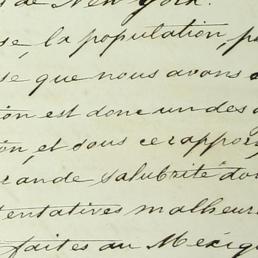 de New York.
se, la population, pe
se que nous avons e
ion est donc un des
on, et sous ce rapport
rande salubrité do
tentatives malheur
faites au Mexiq